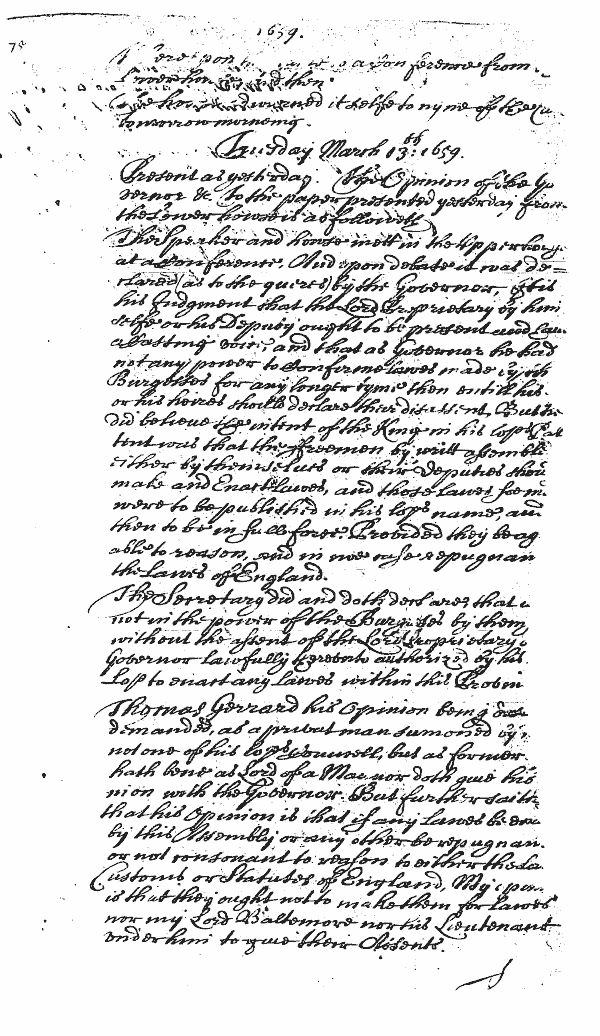 1659.
78
from
then
it selfe to nyne of the
tomorrow morneing.
Tuesday March 13th: 1659.
Present as yesterday. The Opinion of the Go
vernor &c. to the paper presented yesterday from
the Lower howse is as followeth
The Speaker and howse mett in the Upper howse
at a Conference. And upon debate it was de=
clared (as to the queres) by the Governor,
his Judgment that the Lord Proprietary by him
selfe or his Deputy ought to be present and
a Casting voice, and that as Governor he had
not any power to Confirme lawes made by
Burgesses for any longer tyme then untill his
or his heires should declare their disassent, But
did believe the intent of the King in his Lopps Pat
tent was that the ffreemen by writt assembled
either by themselves or their Deputies
make and Enact Lawes, and those Lawes
were to be published in his Lopps name, and
then to be in full force. Provided they be ag
able to reason, and in noe case repugnan
the Lawes of England.
The Secretary did and doth declare that
not in the power of the Burgesses by them
without the assent of the Lord Proprietary
Governor lawfully authorized by his
Lopp to enact any Lawes within this Provin
Thomas Gerrard his Opinion being
demanded, as a privat man summoned by
not one of his Lopps Councell, but as former
hath bene as Lord of a Mannor doth give his
nion with the Governor. But further saith
that his Opinion is that if any Lawes be
by this Assembly or any other be repugnan
or not consonant to reason to either the La
Customs or Statutes of England, My
is that they ought not to make them for Lawes
nor my Lord Baltemore nor his Lieutenant
under him to give their Assents.